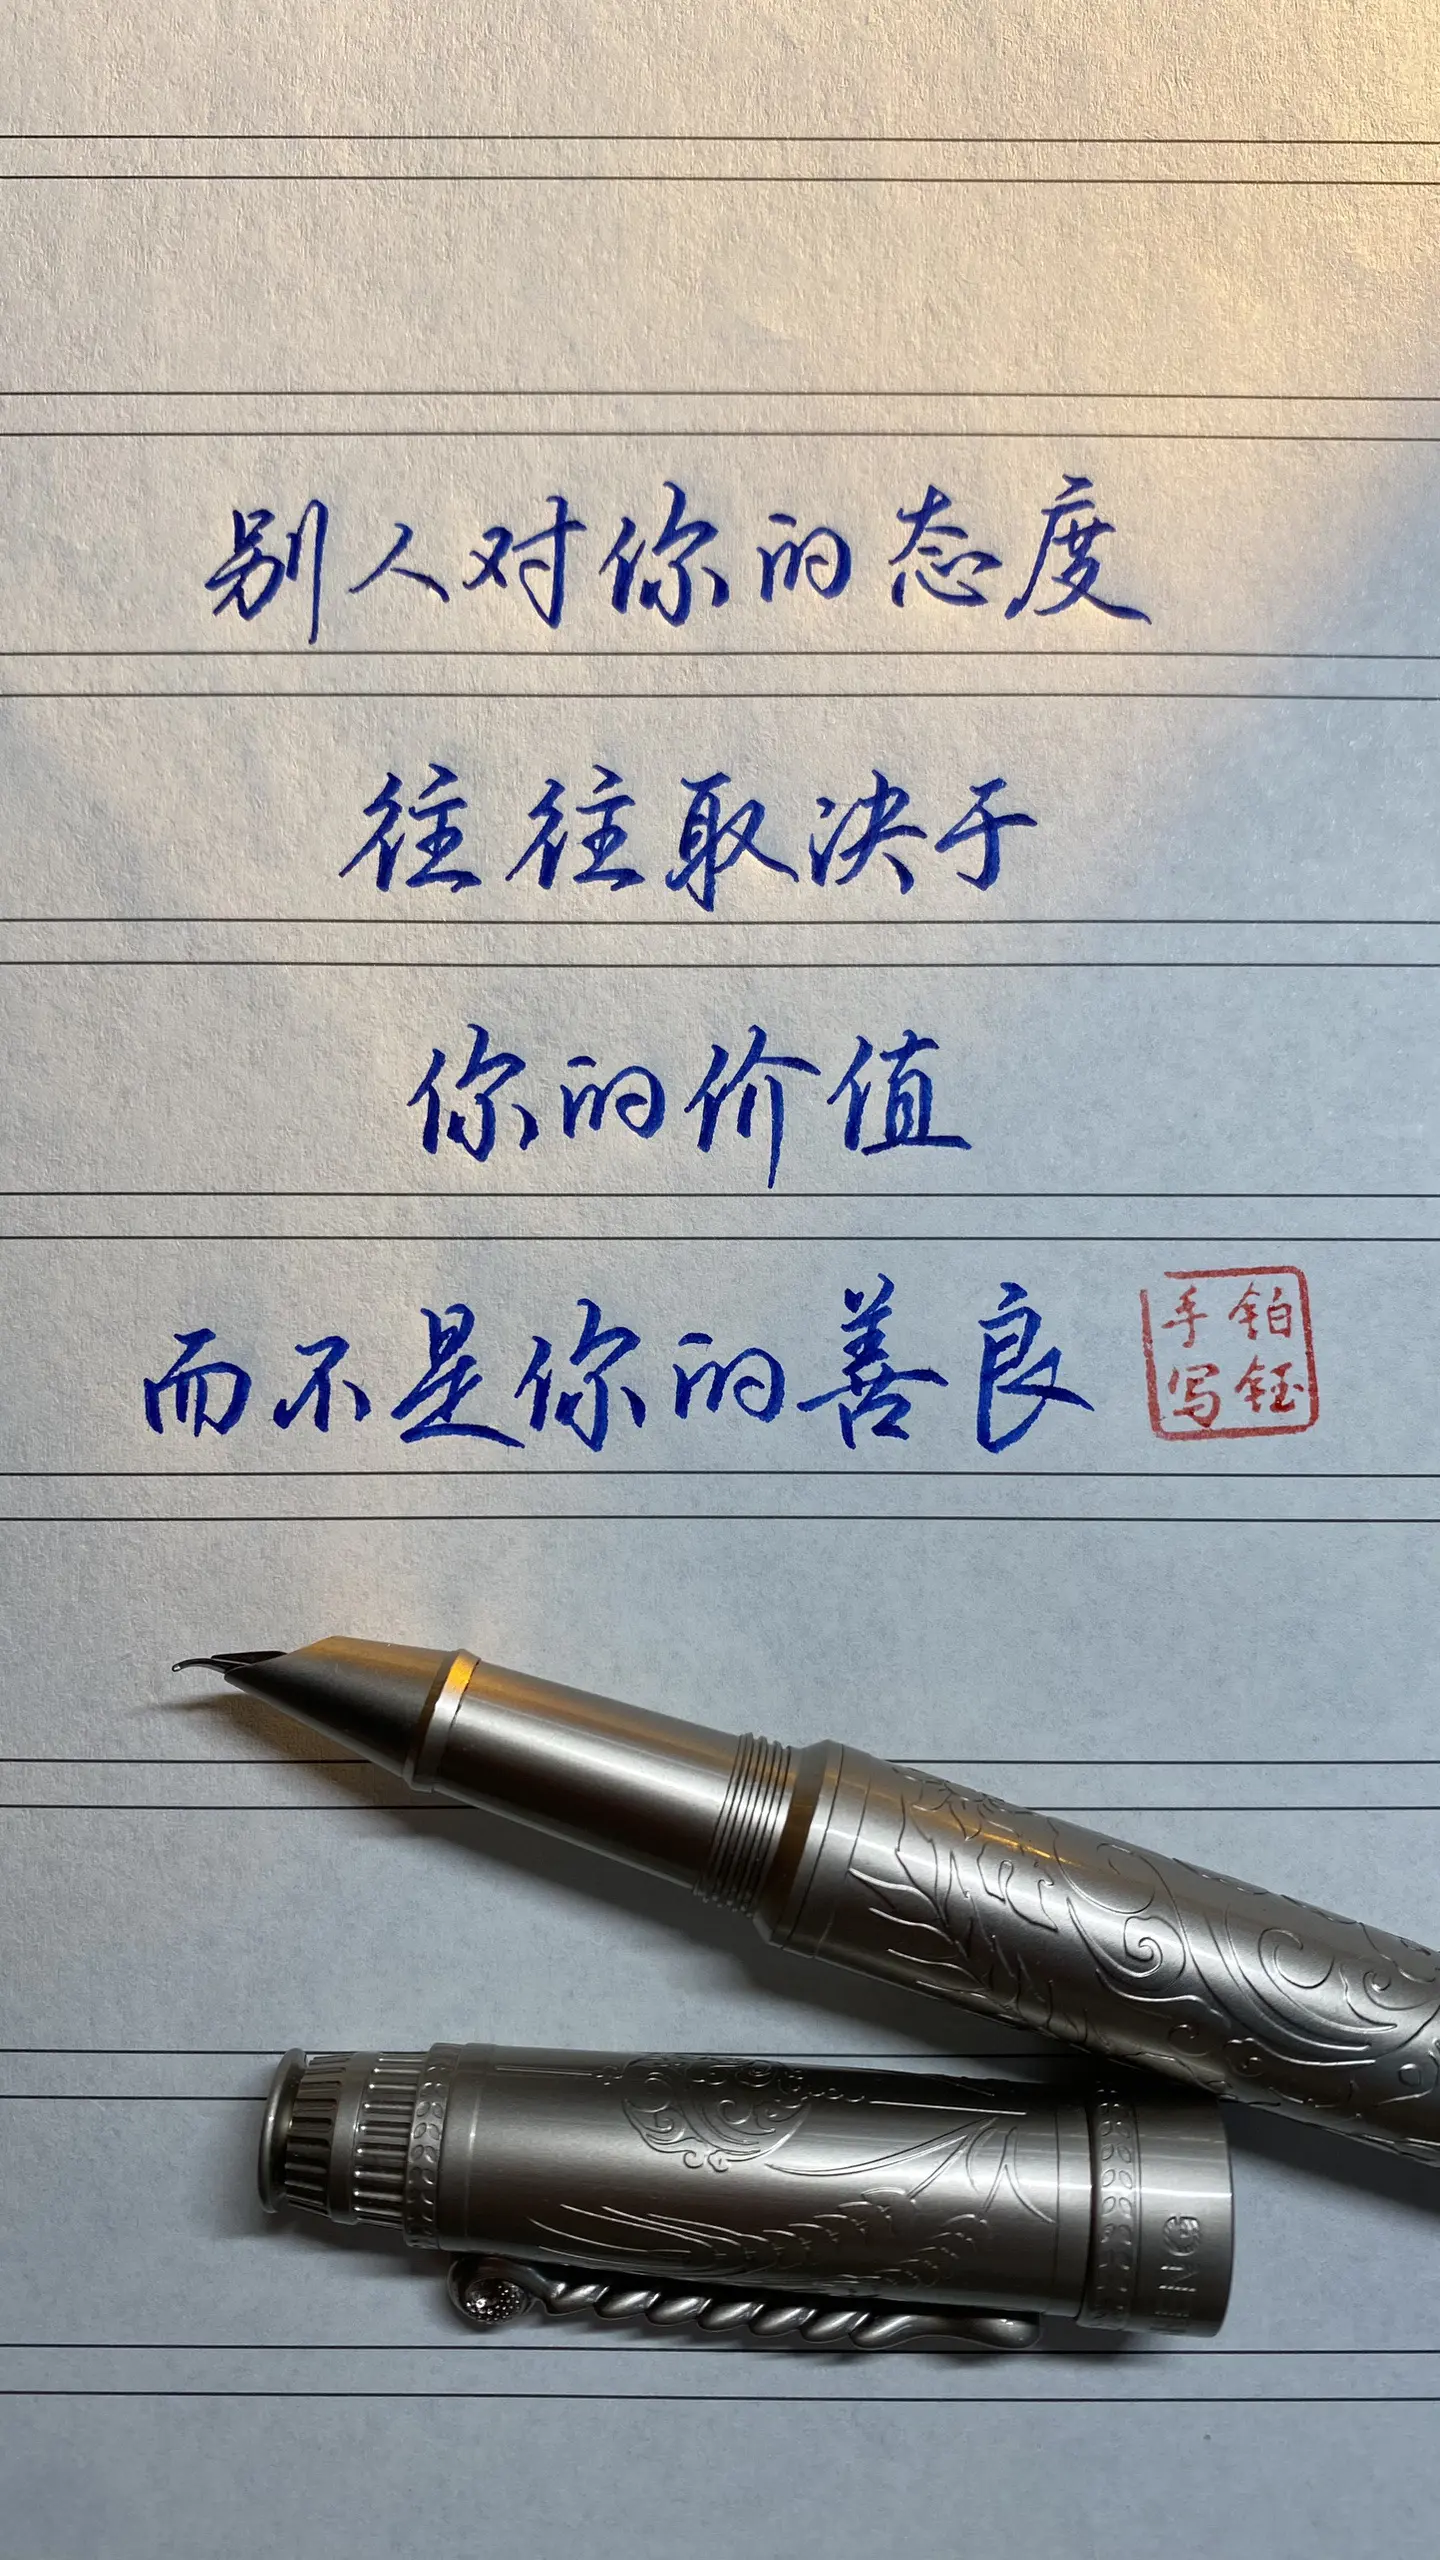 别人对你的态度
往往取决于
你的价值
而不是你的善良
铂钰
手写